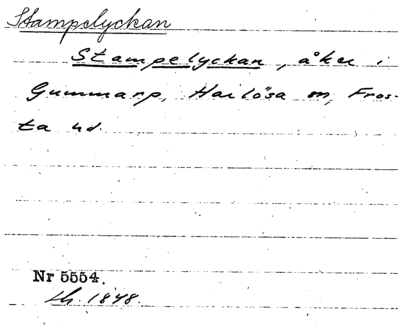 Stampelyckan
Stampelyckan, åker i
Gummarp, Harlösa sn, Fros-
ta hd.
Nr 5554.
1848.